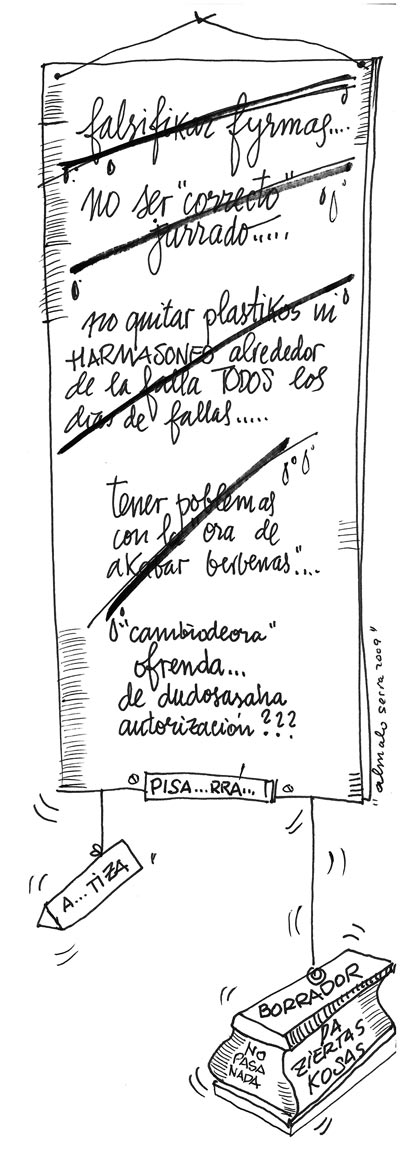 falsifikar fyrmas....
no ser "correcto"
jurrado.....
no quitar plastikos ni
HARMASONES alrededor
de la falla TODOS los
días de fallas.....
tener poblemas
con la "ora de
akabar berbenas"....
"cambiodeora"
ofrenda...
de dudosasaha
autorización???
"almalo serra 2009"
PISA...RRÁ...
A...TIZA
BORRADOR
NO
PASA
NADA
PA
ZIERTAS
KOSAS